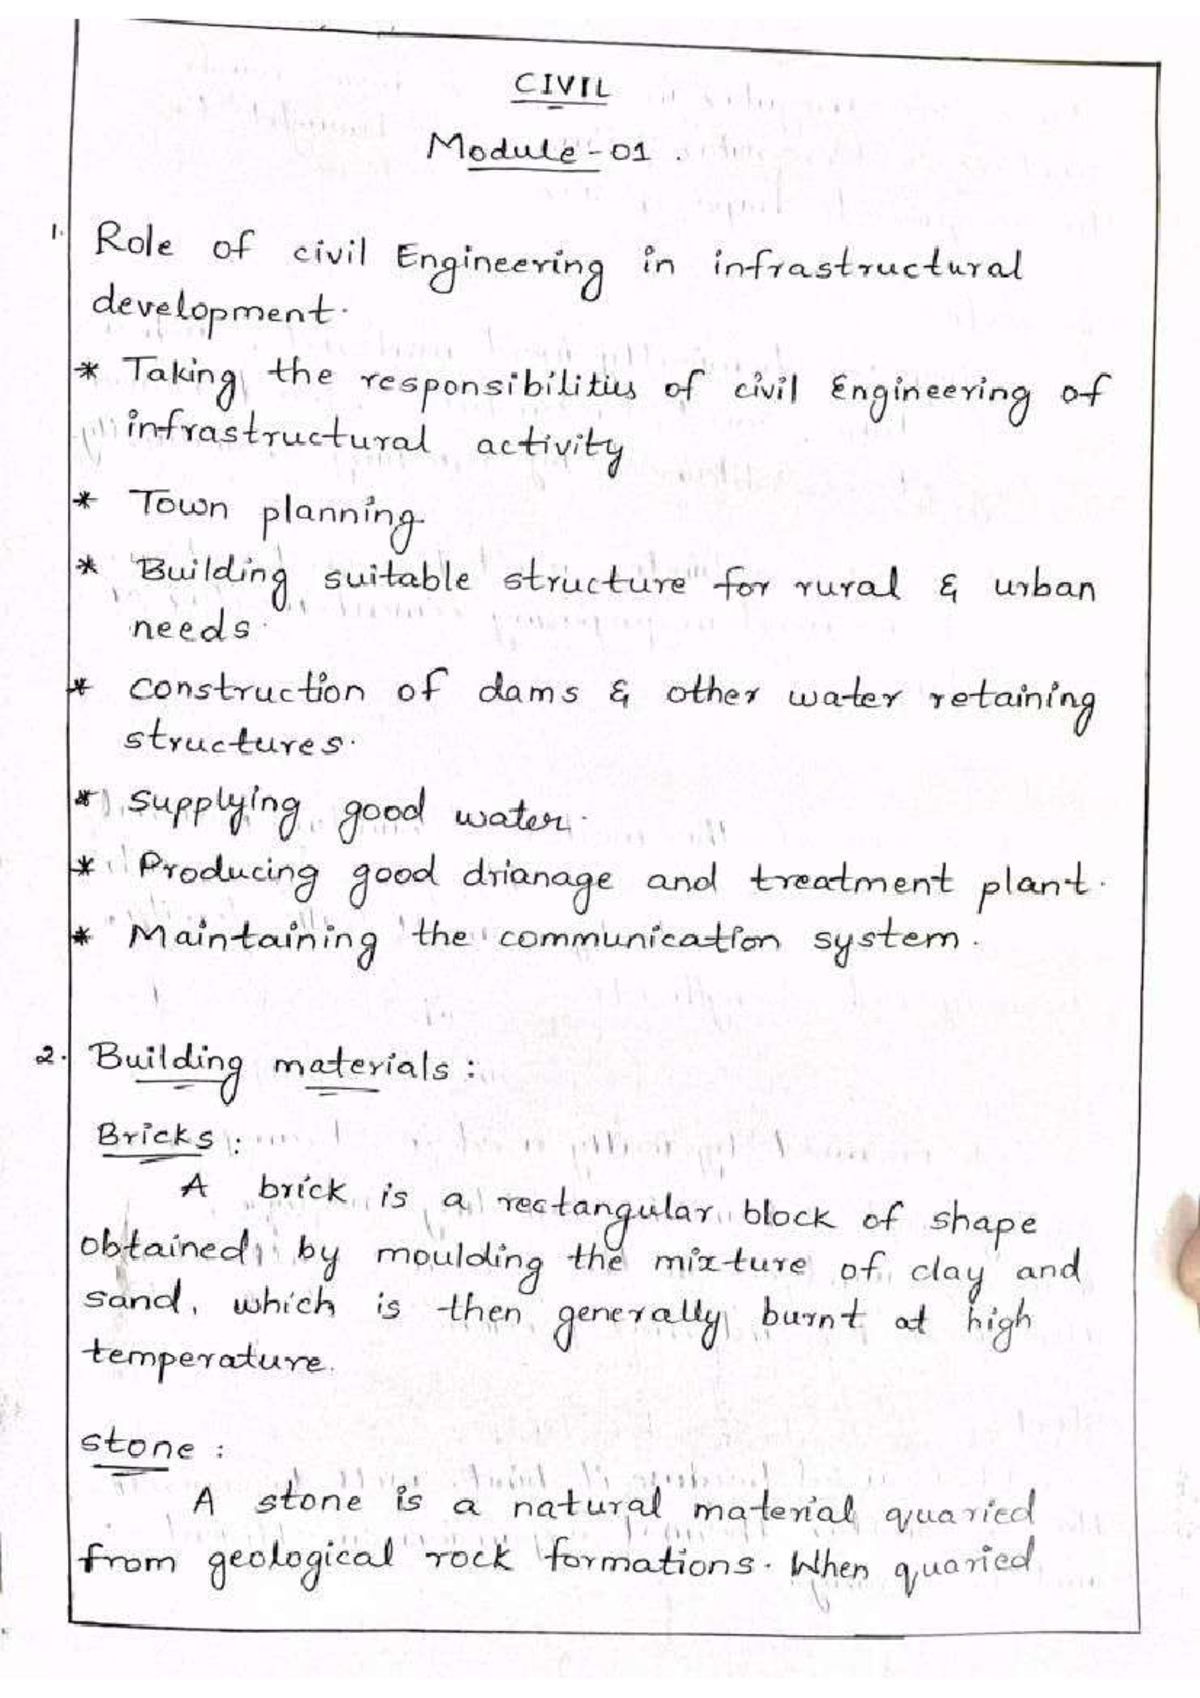 CIVIL
Module-01.
1. Role of civil Engineering in infrastructural
development.
* Taking the responsibilitius of civil Engineering of
infrastructural activity
* Town planning.
* Building suitable structure for rural & urban
needs.
* construction of dams & other water retaining
structures.
* supplying good water.
* Producing good drianage and treatment plant.
* Maintaining the communication system.
2. Building materials :
Bricks :
A brick is a rectangular block of shape
obtained by moulding the mixture of clay and
sand, which is then generally burnt at high
temperature.
stone :
A stone is a natural material quaried
from geological rock formations. When quaried